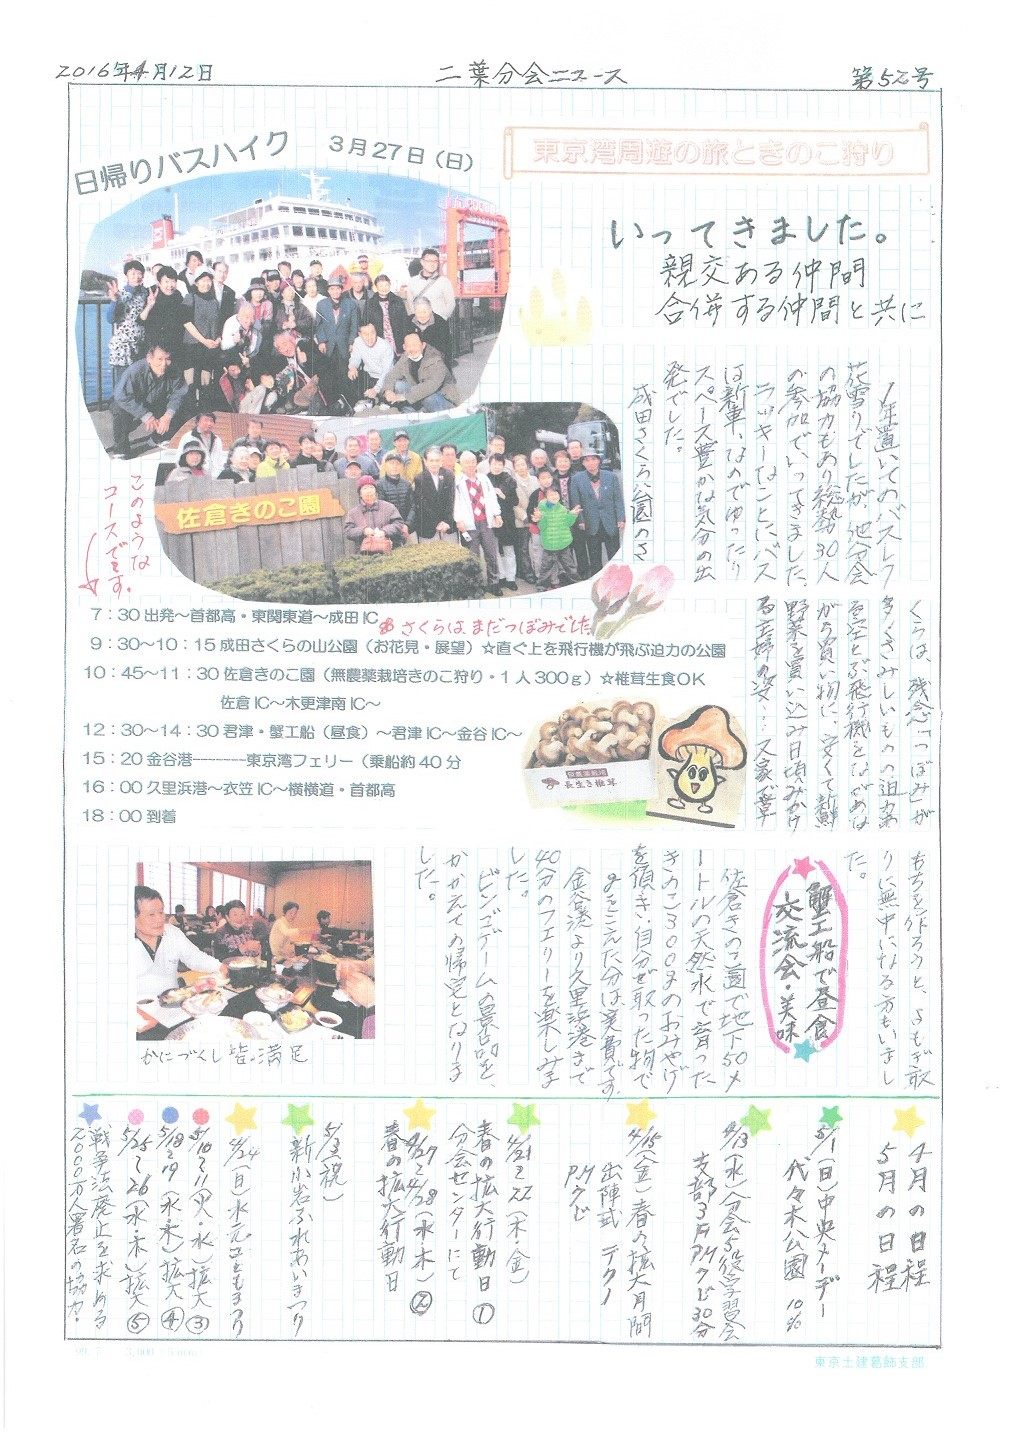 2016年4月12日
二葉分会ニュース
第52号
日帰りバスハイク
3月27日(日)
東京湾周遊の旅ときのこ狩り
いってきました。
親交ある仲間
合併する仲間と共に
1年置いてのバスレク
花雪りでしたが、他分会
の協力もあり総勢30人
の参加で、いってきました。
ラッキーなことにバス
は新車、なのでゆったり
スペース豊かな気分の出
発でした。
成田さくら公園のさ
くらは、残念「つぼみ」が
多くさみしいものの迫力あ
る空とぶ飛行機をながめな
がら買い物に、安くて新鮮
野菜を買い込み日頃みかけ
る主婦の姿…又家で草
もちを作ろうと、よもぎ取
りに無中になる方もいまし
た。
佐倉きのこ園
このような
コースです。
7:30 出発〜首都高・東関東道〜成田IC
さくらは、まだつぼみでした
9:30〜10:15 成田さくらの山公園(お花見・展望)☆直ぐ上を飛行機が飛ぶ迫力の公園
10:45〜11:30 佐倉きのこ園(無農薬栽培きのこ狩り・1人300g)☆椎茸生食OK
佐倉IC〜木更津南IC〜
12:30〜14:30 君津・蟹工船(昼食)〜君津IC〜金谷IC〜
15:20 金谷港————東京湾フェリー(乗船約40分
16:00 久里浜港〜衣笠IC〜横横道・首都高
18:00 到着
長生き椎茸
蟹工船で昼食
交流会・美味
佐倉きのこ園で地下50メ
ートルの天然水で育った
きのこ300gのおみやげ
を頂き、自分で取った物で
オーバーした分は実費です。
金谷港より久里浜港まで
40分のフェリーを楽しみま
した。
ビンゴゲームの景品を、
かかえての帰宅となりま
した。
かにづくし皆満足
4月の日程
5月の日程
5/1(日)中央メーデー
代々木公園 10%
4/13(水)分会5役学習会
支部3F PM7じ30分
4/15(金)春の拡大月間
出陣式 テクノ
PM7じ
4/21〜22(木・金)
春の拡大行動日①
分会センターにて
4/27〜4/28(水・木)②
春の拡大行動日
5/3(祝)
新小岩ふれあいまつり
4/24(日)水元こどもまつり
5/10〜11(火・水)拡大③
5/18〜19(水・木)拡大④
5/25〜26(水・木)拡大⑤
戦争法廃止を求める
2000万人署名の協力!
東京土建葛飾支部